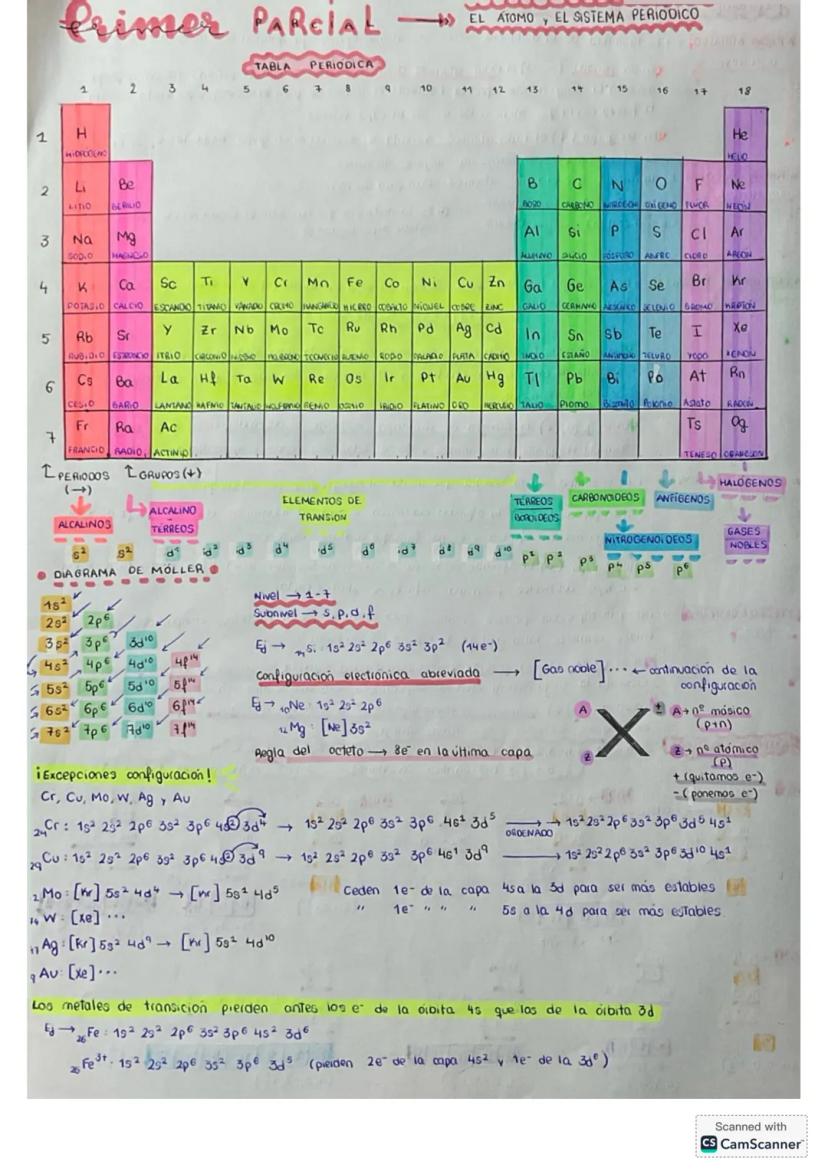 Primer PARCIAL → EL ÁTOMO y EL SISTEMA PERIÓDICO
TABLA PERIODICA
1 2 3 4 5 6 7 8 9 10 11 12 13 14 15 16 17 18
1 H He
HIDRÓGENO HELIO
2 Li Be B C N O F Ne
LITIO BERILIO BORO CARBONO NITRÓGENO OXÍGENO FLUOR NEÓN
3 Na Mg Al Si P S Cl Ar
SODIO MAGNESIO ALUMINIO SILICIO FÓSFORO AZUFRE CLORO ARGÓN
4 K Ca Sc Ti V Cr Mn Fe Co Ni Cu Zn Ga Ge As Se Br Kr
POTASIO CALCIO ESCANDIO TITANIO VANADIO CROMO MANGANESO HIERRO COBALTO NIQUEL COBRE ZINC GALIO GERMANIO ARSÉNICO SELENIO BROMO KRIPTÓN
5 Rb Sr Y Zr Nb Mo Tc Ru Rh Pd Ag Cd In Sn Sb Te I Xe
RUBIDIO ESTRONCIO ITRIO CIRCONIO NIOBIO TECNECIO RODIO PALADIO PLATA CADMIO INDIO ESTAÑO ANTIMONIO TELURO YODO XENON
6 Cs Ba La Hf Ta W Re Os Ir Pt Au Hg Tl Pb Bi Po At Rn
CESIO BARIO LANTANO HAFNIO TANTALIO WOLFRAMIO RENIO OSMIO IRIDIO PLATINO ORO MERCURIO TALIO Plomo Bismuto Polonio Astato RADÓN
7 Fr Ra Ac Ts Og
FRANCIO RADIO ACTINIO TENESO OGANESON
↑ PERIODOS (→) ↑ GRUPOS (↓)
ALCALINOS
ALCALINO TÉRREOS
ELEMENTOS DE TRANSIÓN
TÉRREOS BOROIDEOS
CARBONOIDEOS
NITROGENOIDEOS
ANFÍGENOS
HALÓGENOS
GASES NOBLES
s² s² d¹ d² d³ d⁴ d⁵ d⁶ d⁷ d⁸ d⁹ d¹⁰ p¹ p² p³ p⁴ p⁵ p⁶
DIAGRAMA DE MÖLLER
1s²
2s² 2p⁶
3s² 3p⁶ 3d¹⁰
4s² 4p⁶ 4d¹⁰ 4f¹⁴
5s² 5p⁶ 5d¹⁰ 5f¹⁴
6s² 6p⁶ 6d¹⁰ 6f¹⁴
7s² 7p⁶ 7d¹⁰ 7f¹⁴
Nivel → 1-7
Subnivel → s, p, d, f
Ej → ₁₄Si: 1s² 2s² 2p⁶ 3s² 3p² (14e⁻)
Configuración electrónica abreviada → [Gas noble]... ← continuación de la configuración
Ej → ₁₀Ne: 1s² 2s² 2p⁶
₁₂Mg: [Ne] 3s²
Regla del octeto → 8e⁻ en la última capa
A ±
X
Z
A → nº másico (p+n)
Z → nº atómico (p)
+ (quitamos e⁻)
- (ponemos e⁻)
¡Excepciones configuración!
Cr, Cu, Mo, W, Ag y Au
₂₄Cr: 1s² 2s² 2p⁶ 3s² 3p⁶ 4s② 3d⁴ → 1s² 2s² 2p⁶ 3s² 3p⁶ 4s¹ 3d⁵ → ORDENADO → 1s² 2s² 2p⁶ 3s² 3p⁶ 3d⁵ 4s¹
₂₉Cu: 1s² 2s² 2p⁶ 3s² 3p⁶ 4s② 3d⁹ → 1s² 2s² 2p⁶ 3s² 3p⁶ 4s¹ 3d⁹ → 1s² 2s² 2p⁶ 3s² 3p⁶ 3d¹⁰ 4s¹
₂Mo: [Kr] 5s² 4d⁴ → [Kr] 5s¹ 4d⁵ Ceden 1e⁻ de la capa 4s a la 3d para ser más estables
₇₄W: [Xe]... " 1e⁻ " " " 5s a la 4d para ser más estables
₄₇Ag: [Kr] 5s² 4d⁹ → [Kr] 5s¹ 4d¹⁰
₉Au: [Xe]...
Los metales de transición pierden antes los e⁻ de la órbita 4s que los de la órbita 3d
Ej → ₂₆Fe: 1s² 2s² 2p⁶ 3s² 3p⁶ 4s² 3d⁶
₂₆Fe³⁺: 1s² 2s² 2p⁶ 3s² 3p⁶ 3d⁵ (pierden 2e⁻ de la capa 4s² y 1e⁻ de la 3d⁶)
Scanned with
CS CamScanner